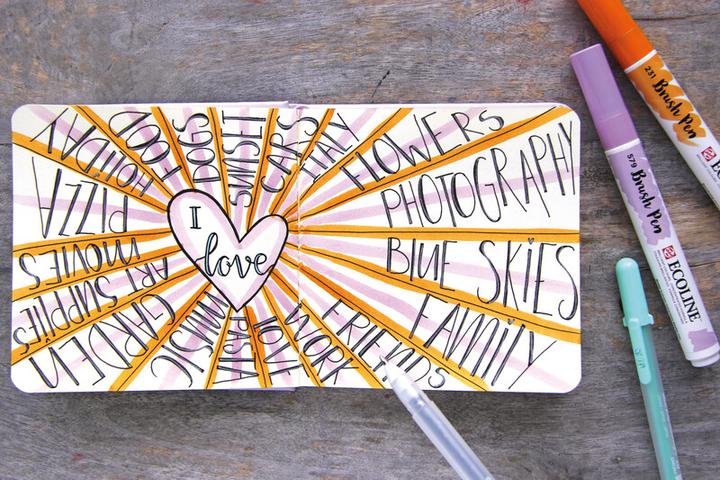 I
love
DOGS
CARS
ITALY
FLOWERS
PHOTOGRAPHY
BLUE SKIES
FAMILY
FRIENDS
WORK
MUSIC
GARDEN
ART SUPPLIES
MOVIES
PIZZA
HOLIDAY
FOOD
231 Brush Pen
579 Brush Pen
ECOLINE